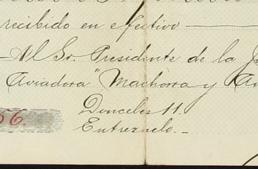 recibido en efectivo
Al Sr. Presidente de la
Aviadora "Machorra y
Donceles 11.
Entresuelo.
56.